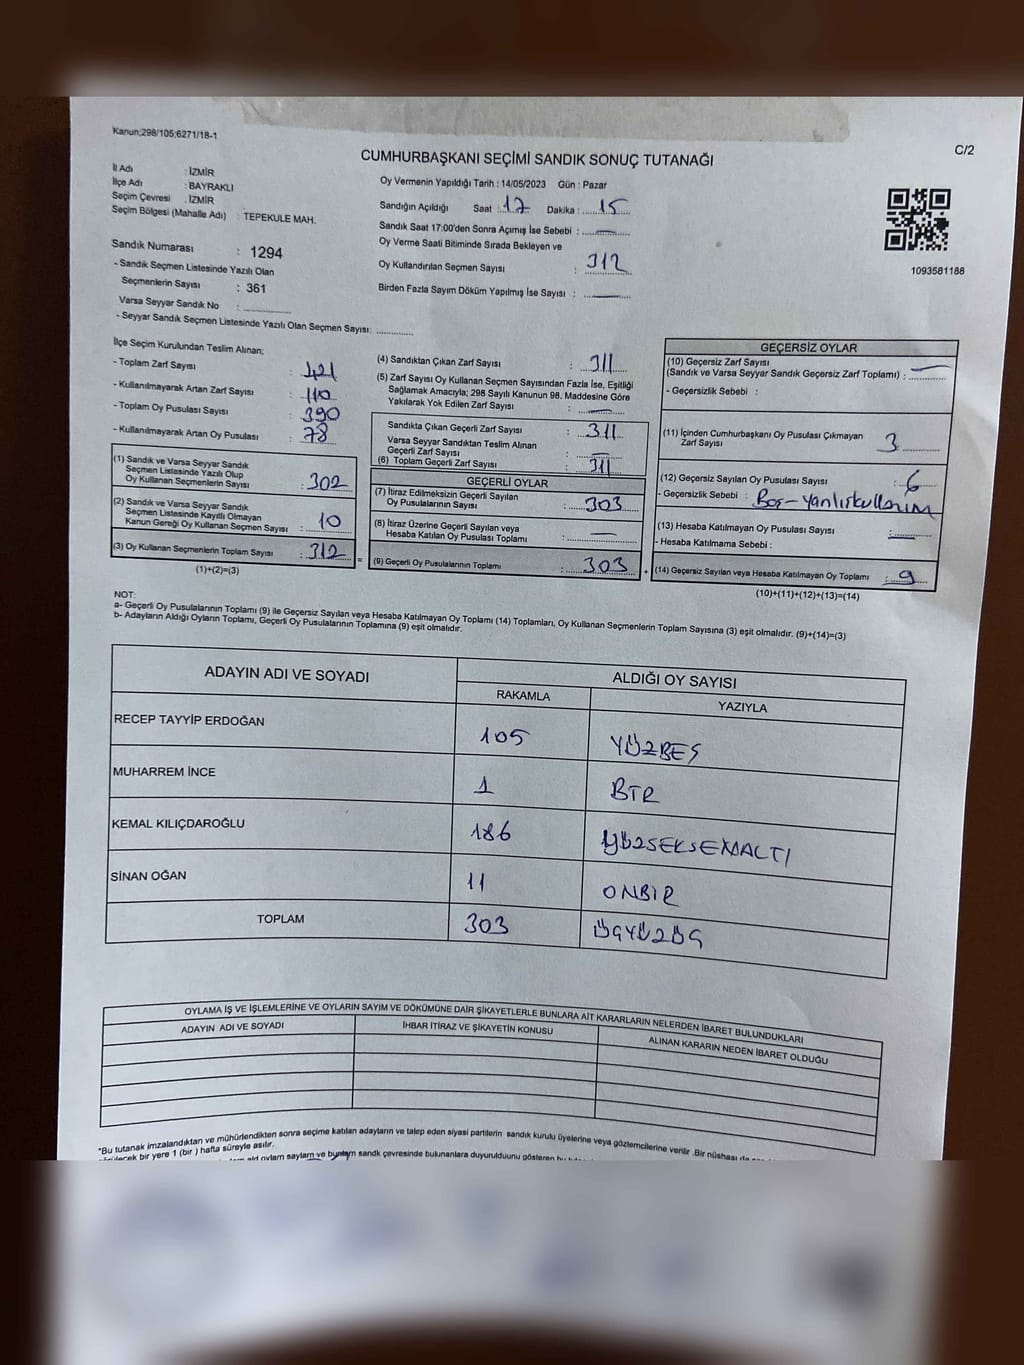 Kanun;298/105;6271/18-1
C/2
CUMHURBAŞKANI SEÇİMİ SANDIK SONUÇ TUTANAĞI
İl Adı : İZMİR
İlçe Adı : BAYRAKLI
Seçim Çevresi : İZMİR
Seçim Bölgesi (Mahalle Adı) : TEPEKULE MAH.
Sandık Numarası : 1294
- Sandık Seçmen Listesinde Yazılı Olan
Seçmenlerin Sayısı : 361
Varsa Seyyar Sandık No : ..............
- Seyyar Sandık Seçmen Listesinde Yazılı Olan Seçmen Sayısı: ............
Oy Vermenin Yapıldığı Tarih : 14/05/2023 Gün : Pazar
Sandığın Açıldığı Saat : 17 Dakika : 15
Sandık Saat 17:00'den Sonra Açımış İse Sebebi : —
Oy Verme Saati Bitiminde Sırada Bekleyen ve
Oy Kullandırılan Seçmen Sayısı : 312
Birden Fazla Sayım Döküm Yapılmış İse Sayısı : —
1093581188
İlçe Seçim Kurulundan Teslim Alınan;
- Toplam Zarf Sayısı : 421
- Kullanılmayarak Artan Zarf Sayısı : 110
- Toplam Oy Pusulası Sayısı : 390
- Kullanılmayarak Artan Oy Pusulası : 78
(1) Sandık ve Varsa Seyyar Sandık
Seçmen Listesinde Yazılı Olup
Oy Kullanan Seçmenlerin Sayısı : 302
(2) Sandık ve Varsa Seyyar Sandık
Seçmen Listesinde Kayıtlı Olmayan
Kanun Gereği Oy Kullanan Seçmen Sayısı : 10
(3) Oy Kullanan Seçmenlerin Toplam Sayısı : 312
(1)+(2)=(3)
(4) Sandıktan Çıkan Zarf Sayısı : 311
(5) Zarf Sayısı Oy Kullanan Seçmen Sayısından Fazla İse, Eşitliği
Sağlamak Amacıyla; 298 Sayılı Kanunun 98. Maddesine Göre
Yakılarak Yok Edilen Zarf Sayısı : —
Sandıkta Çıkan Geçerli Zarf Sayısı : 311
Varsa Seyyar Sandıktan Teslim Alınan
Geçerli Zarf Sayısı : —
(6) Toplam Geçerli Zarf Sayısı : 311
GEÇERLİ OYLAR
(7) İtiraz Edilmeksizin Geçerli Sayılan
Oy Pusulalarının Sayısı : 303
(8) İtiraz Üzerine Geçerli Sayılan veya
Hesaba Katılan Oy Pusulası Toplamı : —
(9) Geçerli Oy Pusulalarının Toplamı : 303
GEÇERSİZ OYLAR
(10) Geçersiz Zarf Sayısı
(Sandık ve Varsa Seyyar Sandık Geçersiz Zarf Toplamı) : —
- Geçersizlik Sebebi :
(11) İçinden Cumhurbaşkanı Oy Pusulası Çıkmayan
Zarf Sayısı 3
(12) Geçersiz Sayılan Oy Pusulası Sayısı : 6
- Geçersizlik Sebebi : Boş-Yanlışkullanım
(13) Hesaba Katılmayan Oy Pusulası Sayısı : —
- Hesaba Katılmama Sebebi :
(14) Geçersiz Sayılan veya Hesaba Katılmayan Oy Toplamı : 9
(10)+(11)+(12)+(13)=(14)
NOT:
a- Geçerli Oy Pusulalarının Toplamı (9) ile Geçersiz Sayılan veya Hesaba Katılmayan Oy Toplamı (14) Toplamları, Oy Kullanan Seçmenlerin Toplam Sayısına (3) eşit olmalıdır. (9)+(14)=(3)
b- Adayların Aldığı Oyların Toplamı, Geçerli Oy Pusulalarının Toplamına (9) eşit olmalıdır.
ADAYIN ADI VE SOYADI ALDIĞI OY SAYISI
RAKAMLA YAZIYLA
RECEP TAYYİP ERDOĞAN 105 YÜZBEŞ
MUHARREM İNCE 1 BİR
KEMAL KILIÇDAROĞLU 186 YÜZSEKSENALTI
SİNAN OĞAN 11 ONBİR
TOPLAM 303 ÜÇYÜZÜÇ
OYLAMA İŞ VE İŞLEMLERİNE VE OYLARIN SAYIM VE DÖKÜMÜNE DAİR ŞİKAYETLERLE BUNLARA AİT KARARLARIN NELERDEN İBARET BULUNDUKLARI
ADAYIN ADI VE SOYADI İHBAR İTİRAZ VE ŞİKAYETİN KONUSU ALINAN KARARIN NEDEN İBARET OLDUĞU
*Bu tutanak imzalandıktan ve mühürlendikten sonra seçime katılan adayların ve talep eden siyasi partilerin sandık kurulu üyelerine veya gözlemcilerine verilir .Bir nüshası da
bir yere 1 (bir ) hafta süreyle asılır.